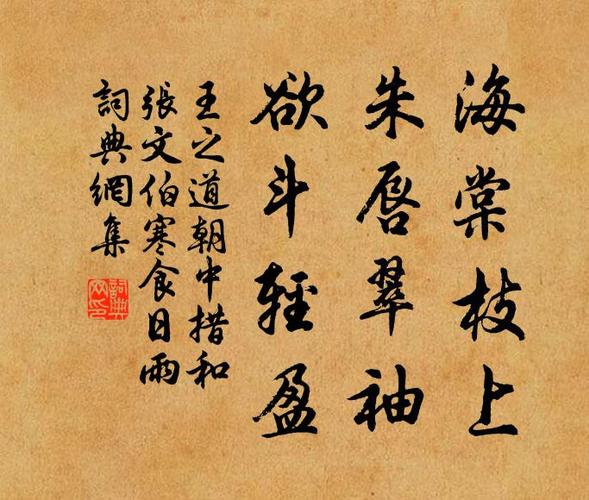 海棠枝上
朱唇翠袖
欲斗轻盈
王之道朝中措和
张文伯寒食日雨
词典網集
詞典網印